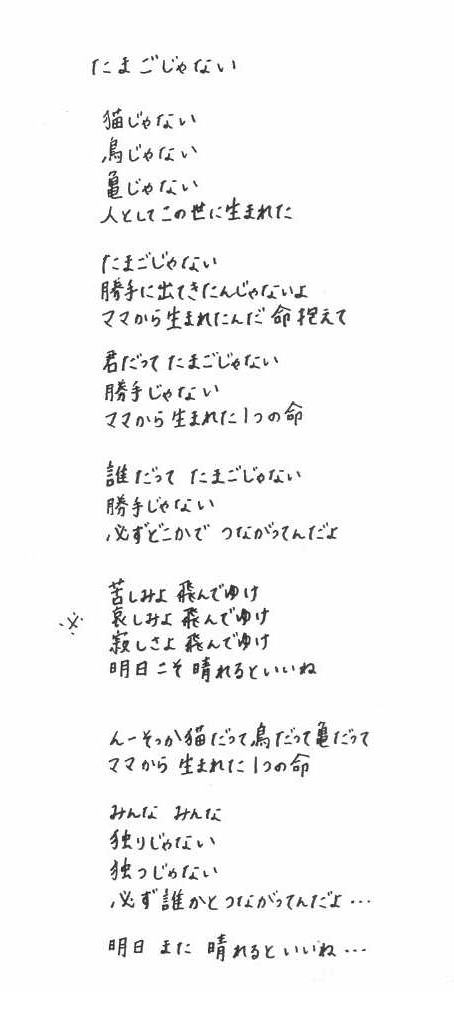 たまごじゃない
猫じゃない
鳥じゃない
亀じゃない
人としてこの世に生まれた
たまごじゃない
勝手に出てきたんじゃないよ
ママから生まれたんだ 命抱えて
君だって たまごじゃない
勝手じゃない
ママから 生まれた1つの命
誰だって たまごじゃない
勝手じゃない
必ずどこかで つながってんだよ
苦しみよ 飛んでゆけ
※ 哀しみよ 飛んでゆけ
寂しさよ 飛んでゆけ
明日こそ 晴れるといいね
んーそっか猫だって鳥だって亀だって
ママから 生まれた1つの命
みんな みんな
独りじゃない
独つじゃない
必ず誰かとつながってんだよ…
明日 また 晴れるといいね…